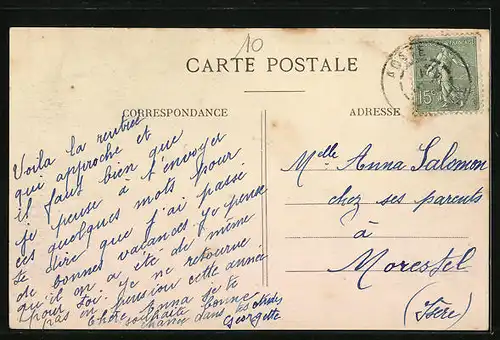 10
CARTE POSTALE
CORRESPONDANCE
ADRESSE
Voila la rentrée
qui approche et
il faut bien que
je pense à t'envoyer
ces quelques mots pour
te dire que j'ai passé
de bonnes vacances. Je pense
qu'il en a été de même
pour toi. Je ne retourne
pas en pension cette année
Chère Anna je te
souhaite bonne
chance dans tes études
Georgette
Melle Anna Salemon
chez ses parents
à
Morestel
(Isère)
AOSTE
15c